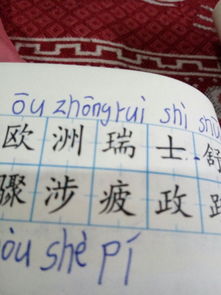 ōu zhōng rui shì shū
欧洲瑞士舒
骤涉疲政
òu shè pí